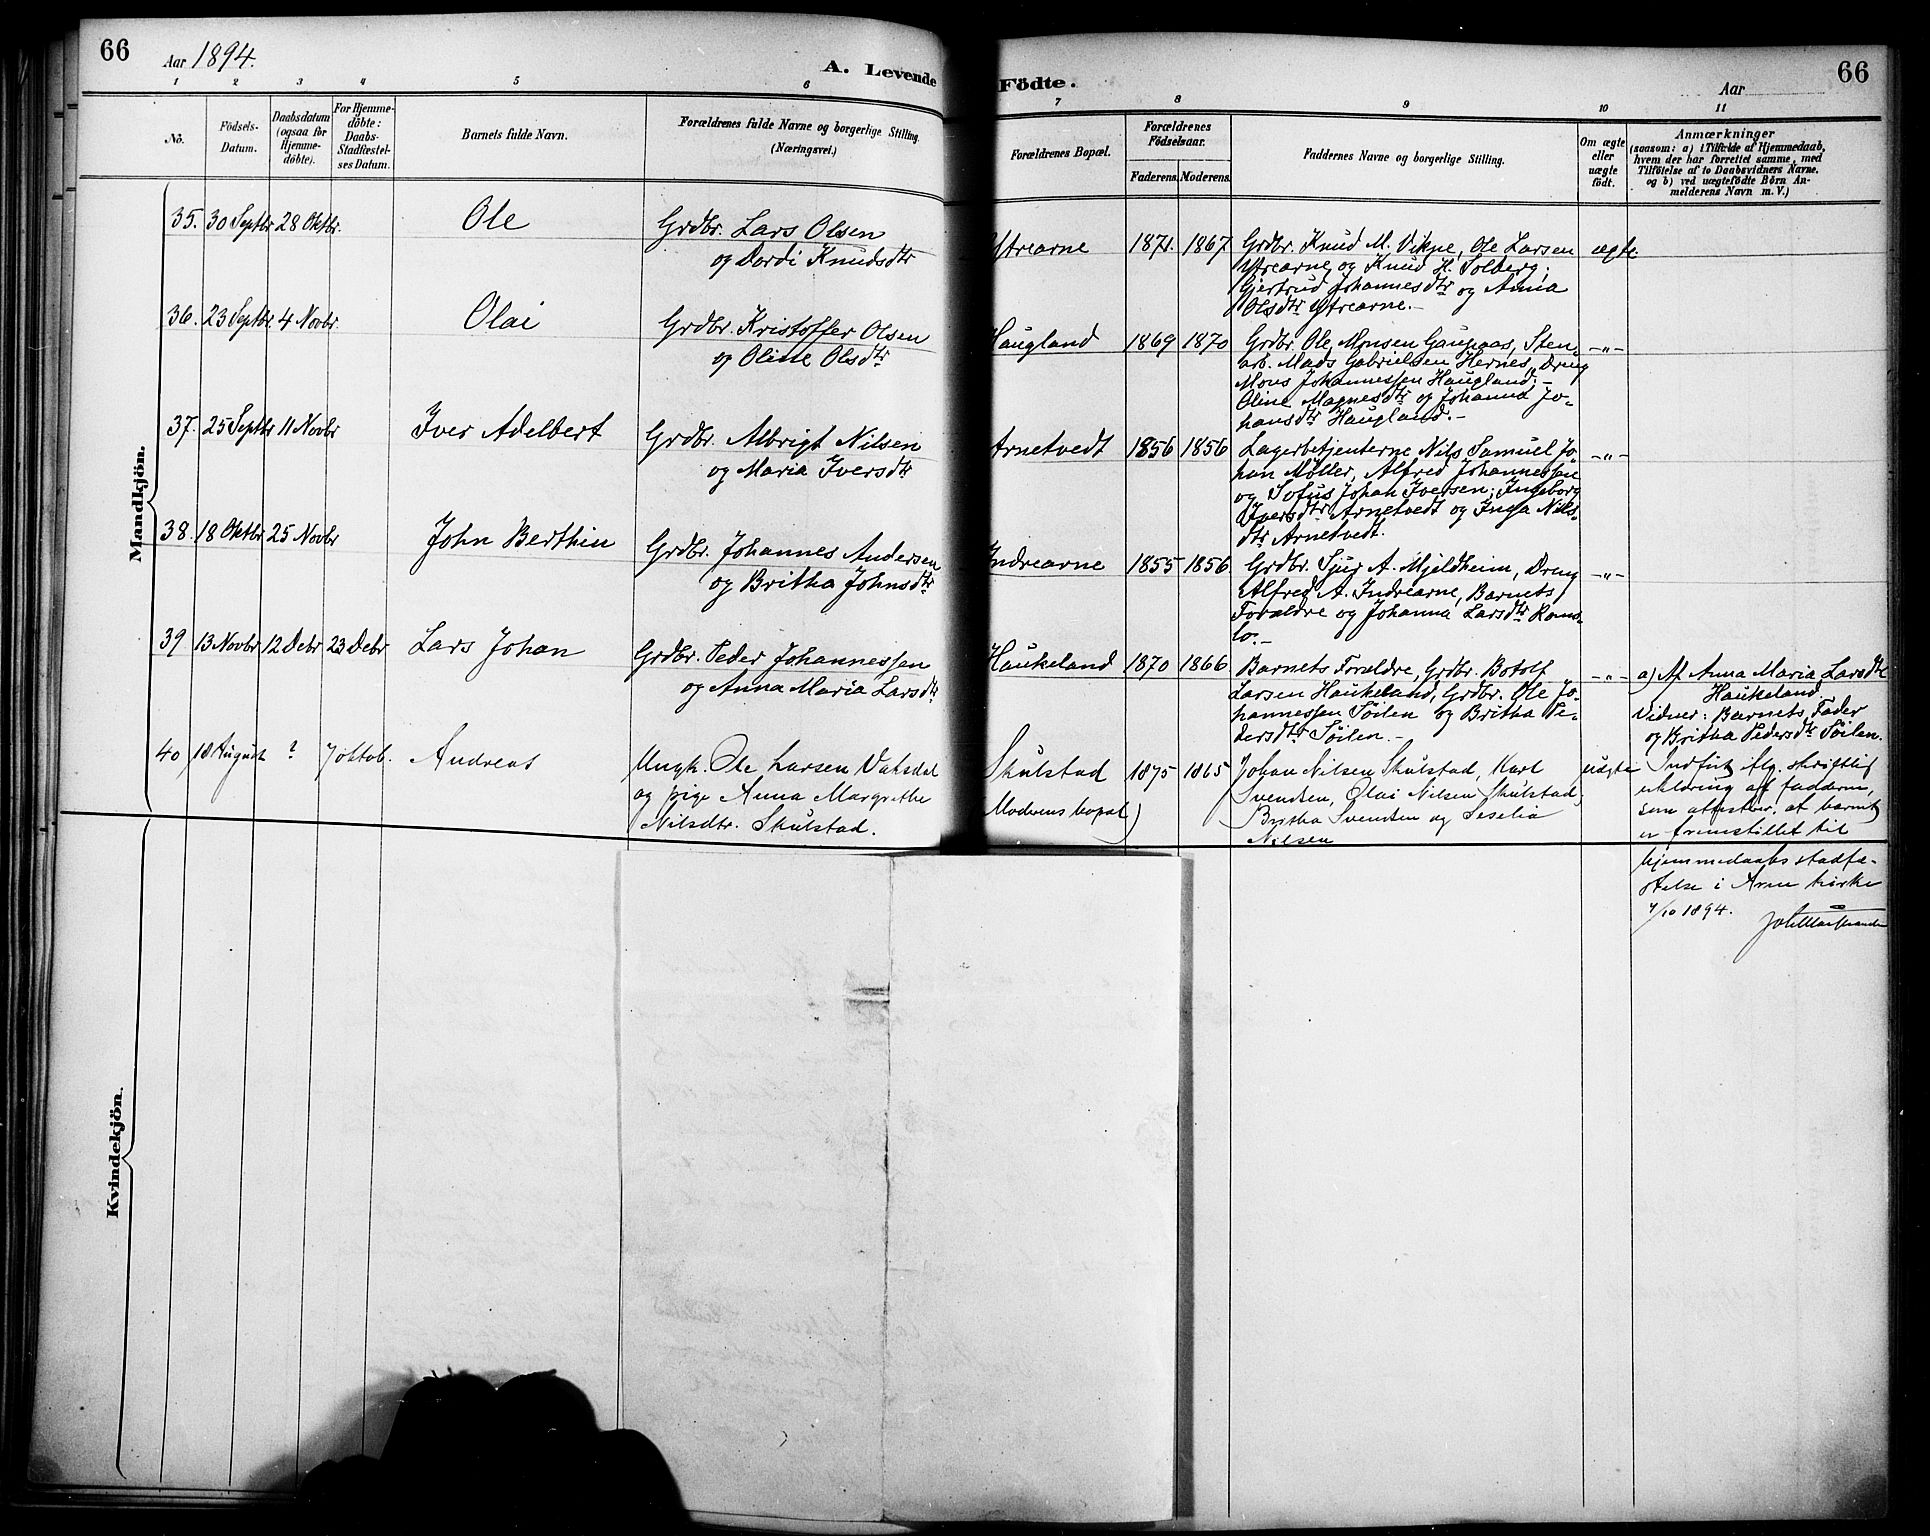 66
Aar 1894.
A. Levende
Födte.
Aar
66
1 2 3 4 5 6 7 8 9 10 11
No.
Födsels-
Datum.
Daabsdatum
(ogsaa for
Hjemme-
döbte).
For Hjemme-
döbte:
Daabs-
Stadfæstel-
ses Datum.
Barnets fulde Navn.
Forældrenes fulde Navne og borgerlige Stilling.
(Næringsvei.)
Forældrenes Bopæl.
Forældrenes
Födselsaar.
Faderens. Moderens.
Faddernes Navne og borgerlige Stilling.
Om ægte
eller
uægte
födt.
Anmærkninger
(saasom: a) i Tilfælde af Hjemmedaab,
hvem der har forrettet samme, med
Tilföielse af to Daabsvidners Navne.
og b) ved uægtefödte Börn An-
melderens Navn m. V.)
Mandkjön.
35. 30 Septbr. 28 Oktbr. Ole
Grdbr. Lars Olsen
og Dordi Knudsdtr
Ytrearne 1871. 1867
Grdbr. Knud M. Vikne, Ole Larsen
Ytrearne og Knud H. Solberg;
Gjertrud Johannesdtr og Anna
Olsdtr Ytrearne.-
ægte
36. 23 Septbr. 4 Novbr. Olai
Grdbr. Kristoffer Olsen
og Oline Olsdtr
Haugland 1869 1870
Grdbr. Ole Monsen Gaupaas, Sten-
arb. Mads Gabrielsen Hernes, Dreng
Mons Johannessen Haugland;-
Oline Magnesdtr og Johanna Jo-
hansdtr Haugland.-
-"-
37. 25 Septbr 11 Novbr Iver Adelbert
Grdbr. Albrigt Nilsen
og Maria Iversdtr
Arnetvedt 1856 1856
Lagerbetjenterne Nils Samuel Jo-
han Møller, Alfred Johannessen
og Sofus Johan Iversen; Ingeborg
Iversdtr Arnetvedt og Inga Nils-
dtr Arnetvedt.
-"-
38. 18 Oktbr 25 Novbr John Berthin
Grdbr. Johannes Andersen
og Britha Johnsdtr
Indrearne 1855 1856
Grdbr. Sjur A. Mjeldheim, Dreng
Alfred A. Indrearne, Barnets
Forældre og Johanna Larsdtr Roms-
lo.-
-"-
39 13 Novbr 12 Debr 23 Debr Lars Johan
Grdbr. Peder Johannessen
og Anna Maria Larsdtr
Haukeland 1870 1866
Barnets Forældre, Grdbr. Botolf
Larsen Haukeland, Grdbr. Ole Jo-
hannessen Söilen og Britha Pe-
dersdtr Söilen.-
-"-
a) Af Anna Maria Larsdtr
Haukeland.
Vidner: Barnets Fader
og Britha Pedersdtr Söilen.
40 18 August ? 7 oktob. Andreas
Ungk. Ole Larsen Vaksdal
og pige Anna Margrethe
Nilsdtr. Skulstad.
Skulstad
Moderens bopæl)
1875 1865
Johan Nilsen Skulstad, Karl
Svendsen, Olai Nilsen Skulstad
Britha Svendsen og Seselia
Nilsen
uægte
Indført iflg. skriftlig
erklæring af faddern,
som attesterer, at barnet
er fremstillet til
hjemmedaabs stadfæ-
stelse i Arne kirke
7/10 1894.
Kvindekjön.